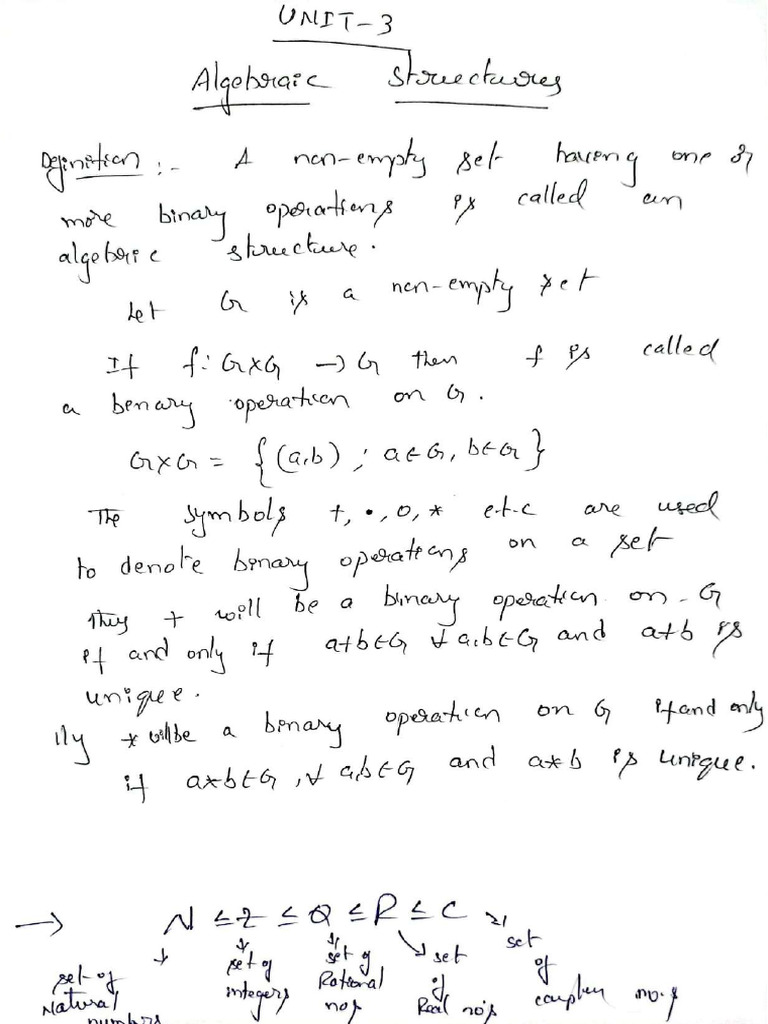 UNIT-3
Algebraic Structures
Definition :- A non-empty set having one or
more binary operations is called an
algebric structure.
Let G is a non-empty set
If f: G×G → G then f is called
a benary operation on G.
G×G = {(a,b) ; a∈G, b∈G}
The symbols +, •, o, * e.t.c are used
to denote binary operations on a set
Thus + will be a binary operation on G
if and only if a+b∈G ∀ a,b∈G and a+b is
unique.
lly * will be a binary operation on G if and only
if a*b∈G, ∀ a,b∈G and a*b is unique.
→ N ≤ Z ≤ Q ≤ R ≤ C
set of Natural numbers
set of integers
set of Rational nos
set of Real no's
set of complex no.s